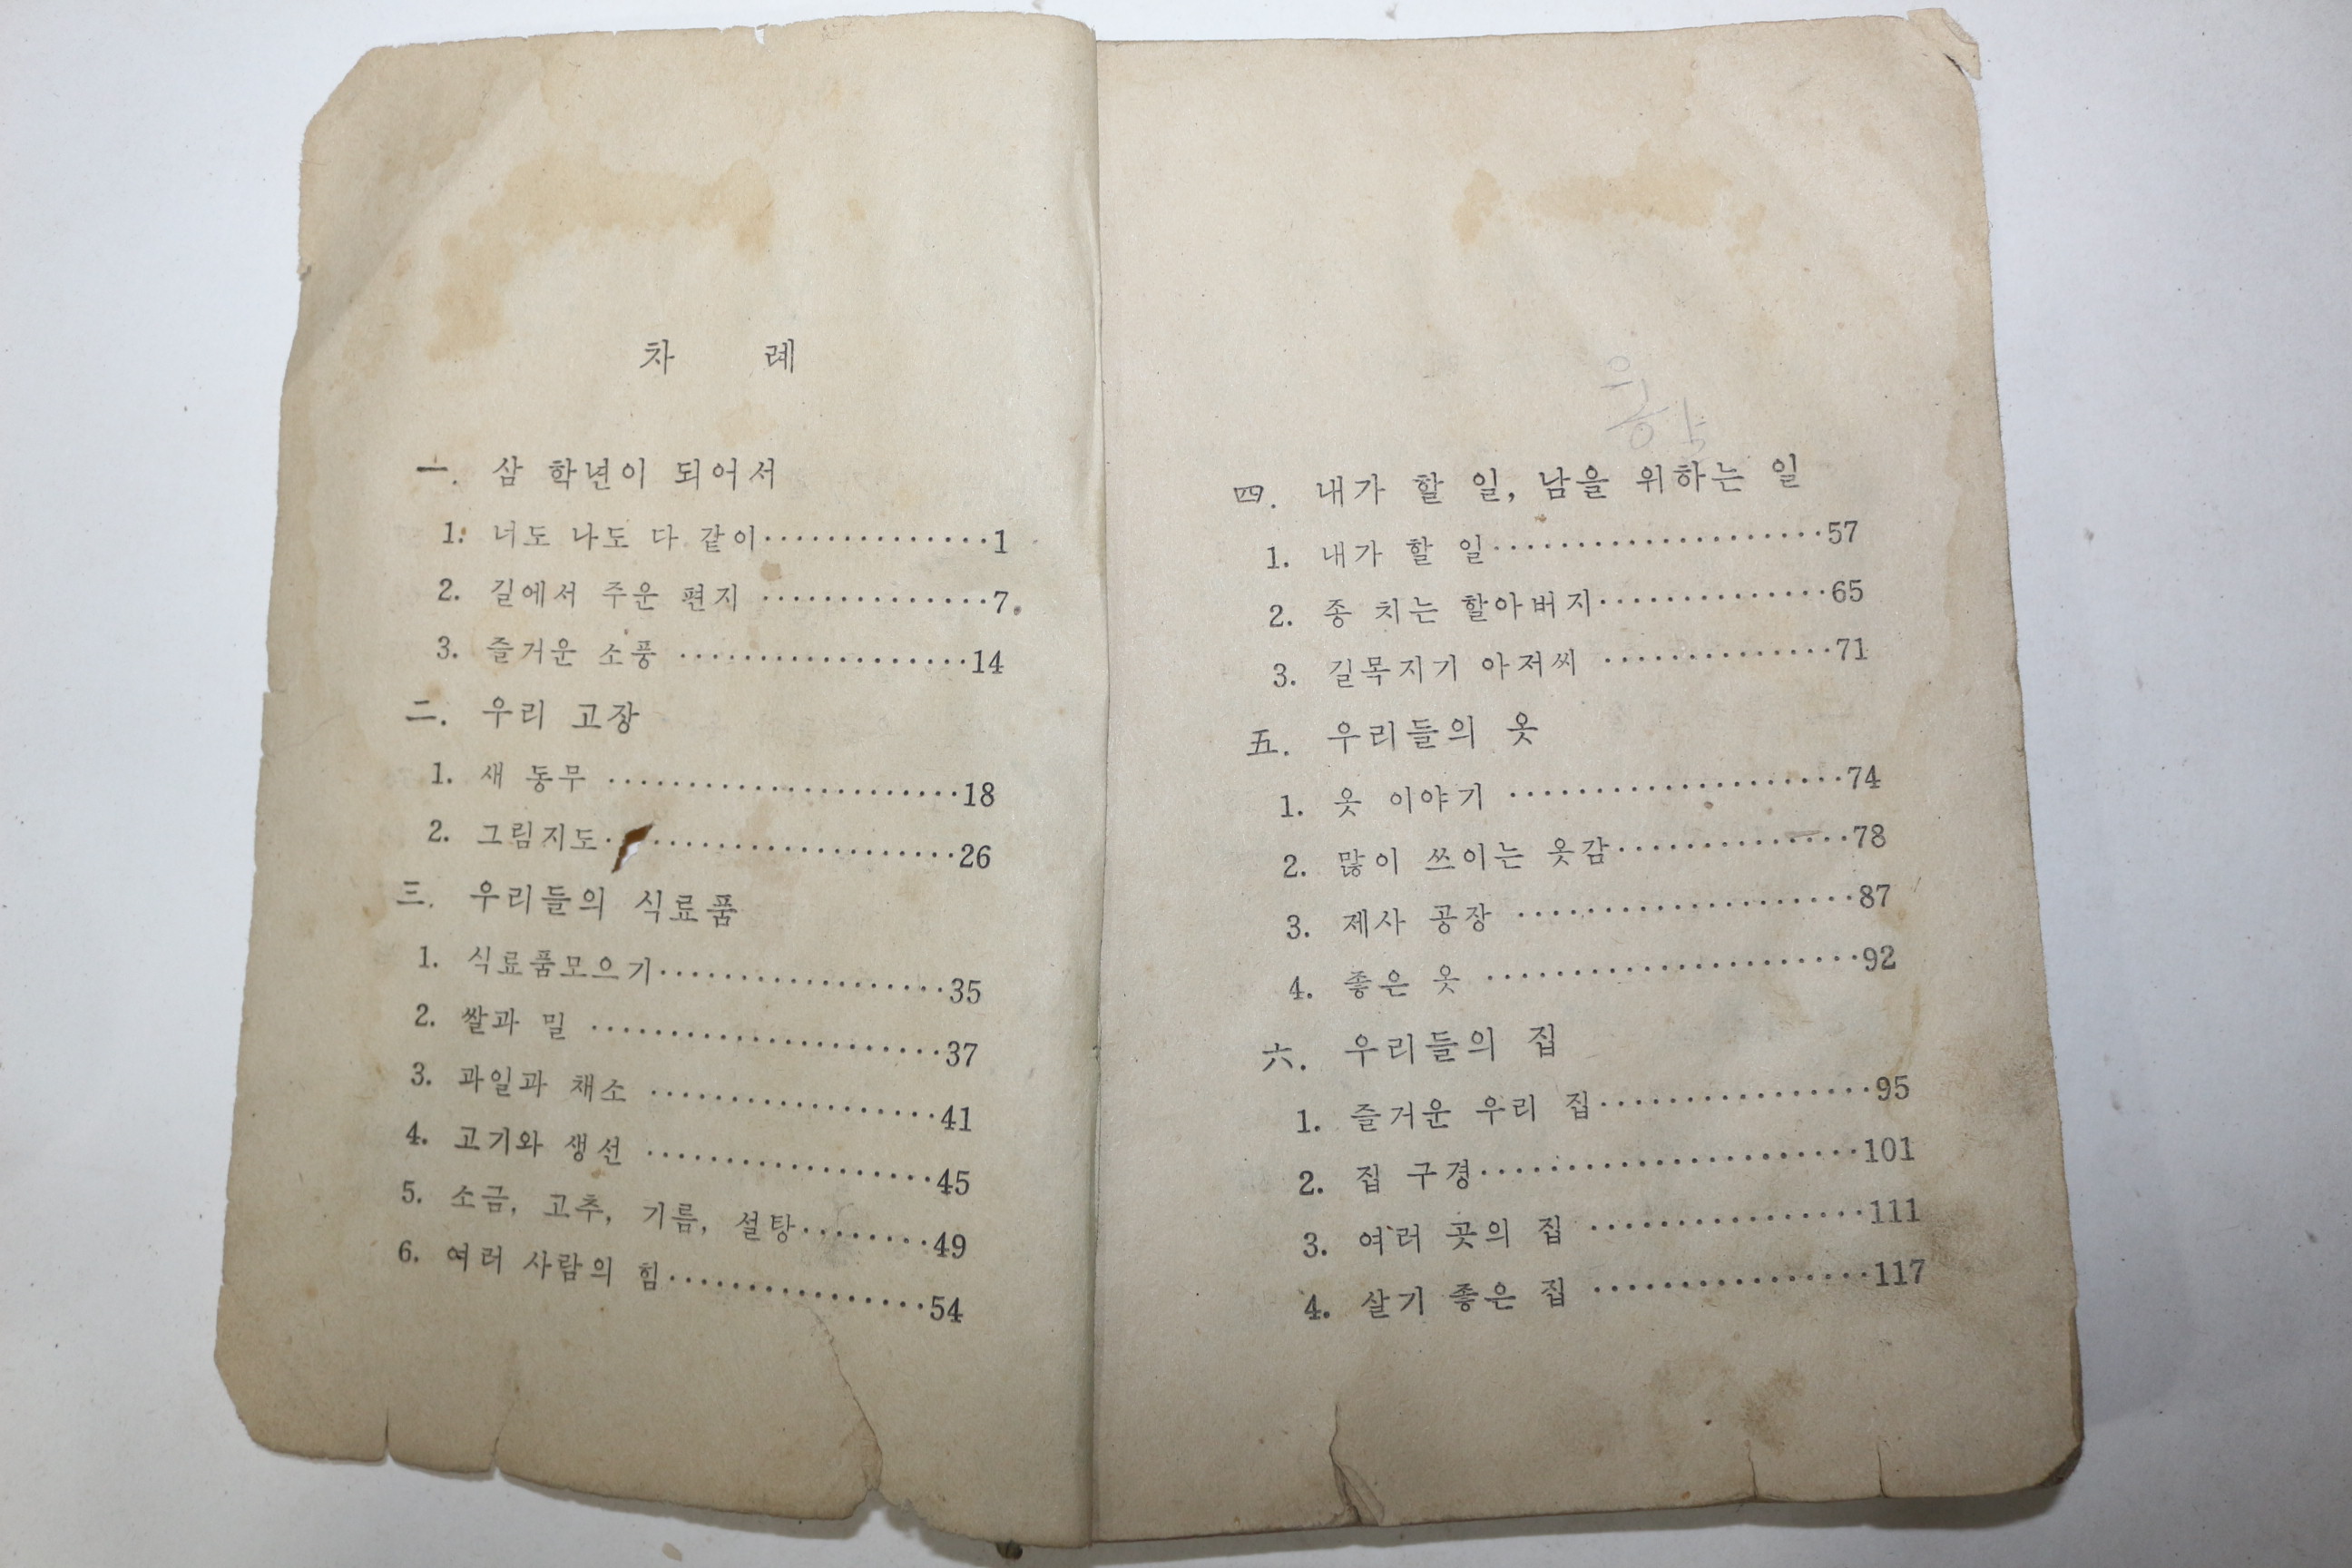 차 례
一. 삼 학년이 되어서
1. 너도 나도 다 같이……………1
2. 길에서 주운 편지 ……………7
3. 즐거운 소풍 ………………14
二. 우리 고장
1. 새 동무 ……………………18
2. 그림지도……………………26
三. 우리들의 식료품
1. 식료품모으기………………35
2. 쌀과 밀 ……………………37
3. 과일과 채소 ………………41
4. 고기와 생선 ………………45
5. 소금, 고추, 기름, 설탕………49
6. 여러 사람의 힘………………54
四. 내가 할 일, 남을 위하는 일
1. 내가 할 일……………………57
2. 종 치는 할아버지……………65
3. 길목지기 아저씨 ……………71
五. 우리들의 옷
1. 옷 이야기 ……………………74
2. 많이 쓰이는 옷감……………78
3. 제사 공장 ……………………87
4. 좋은 옷 ………………………92
六. 우리들의 집
1. 즐거운 우리 집………………95
2. 집 구경………………………101
3. 여러 곳의 집 ………………111
4. 살기 좋은 집 ………………117